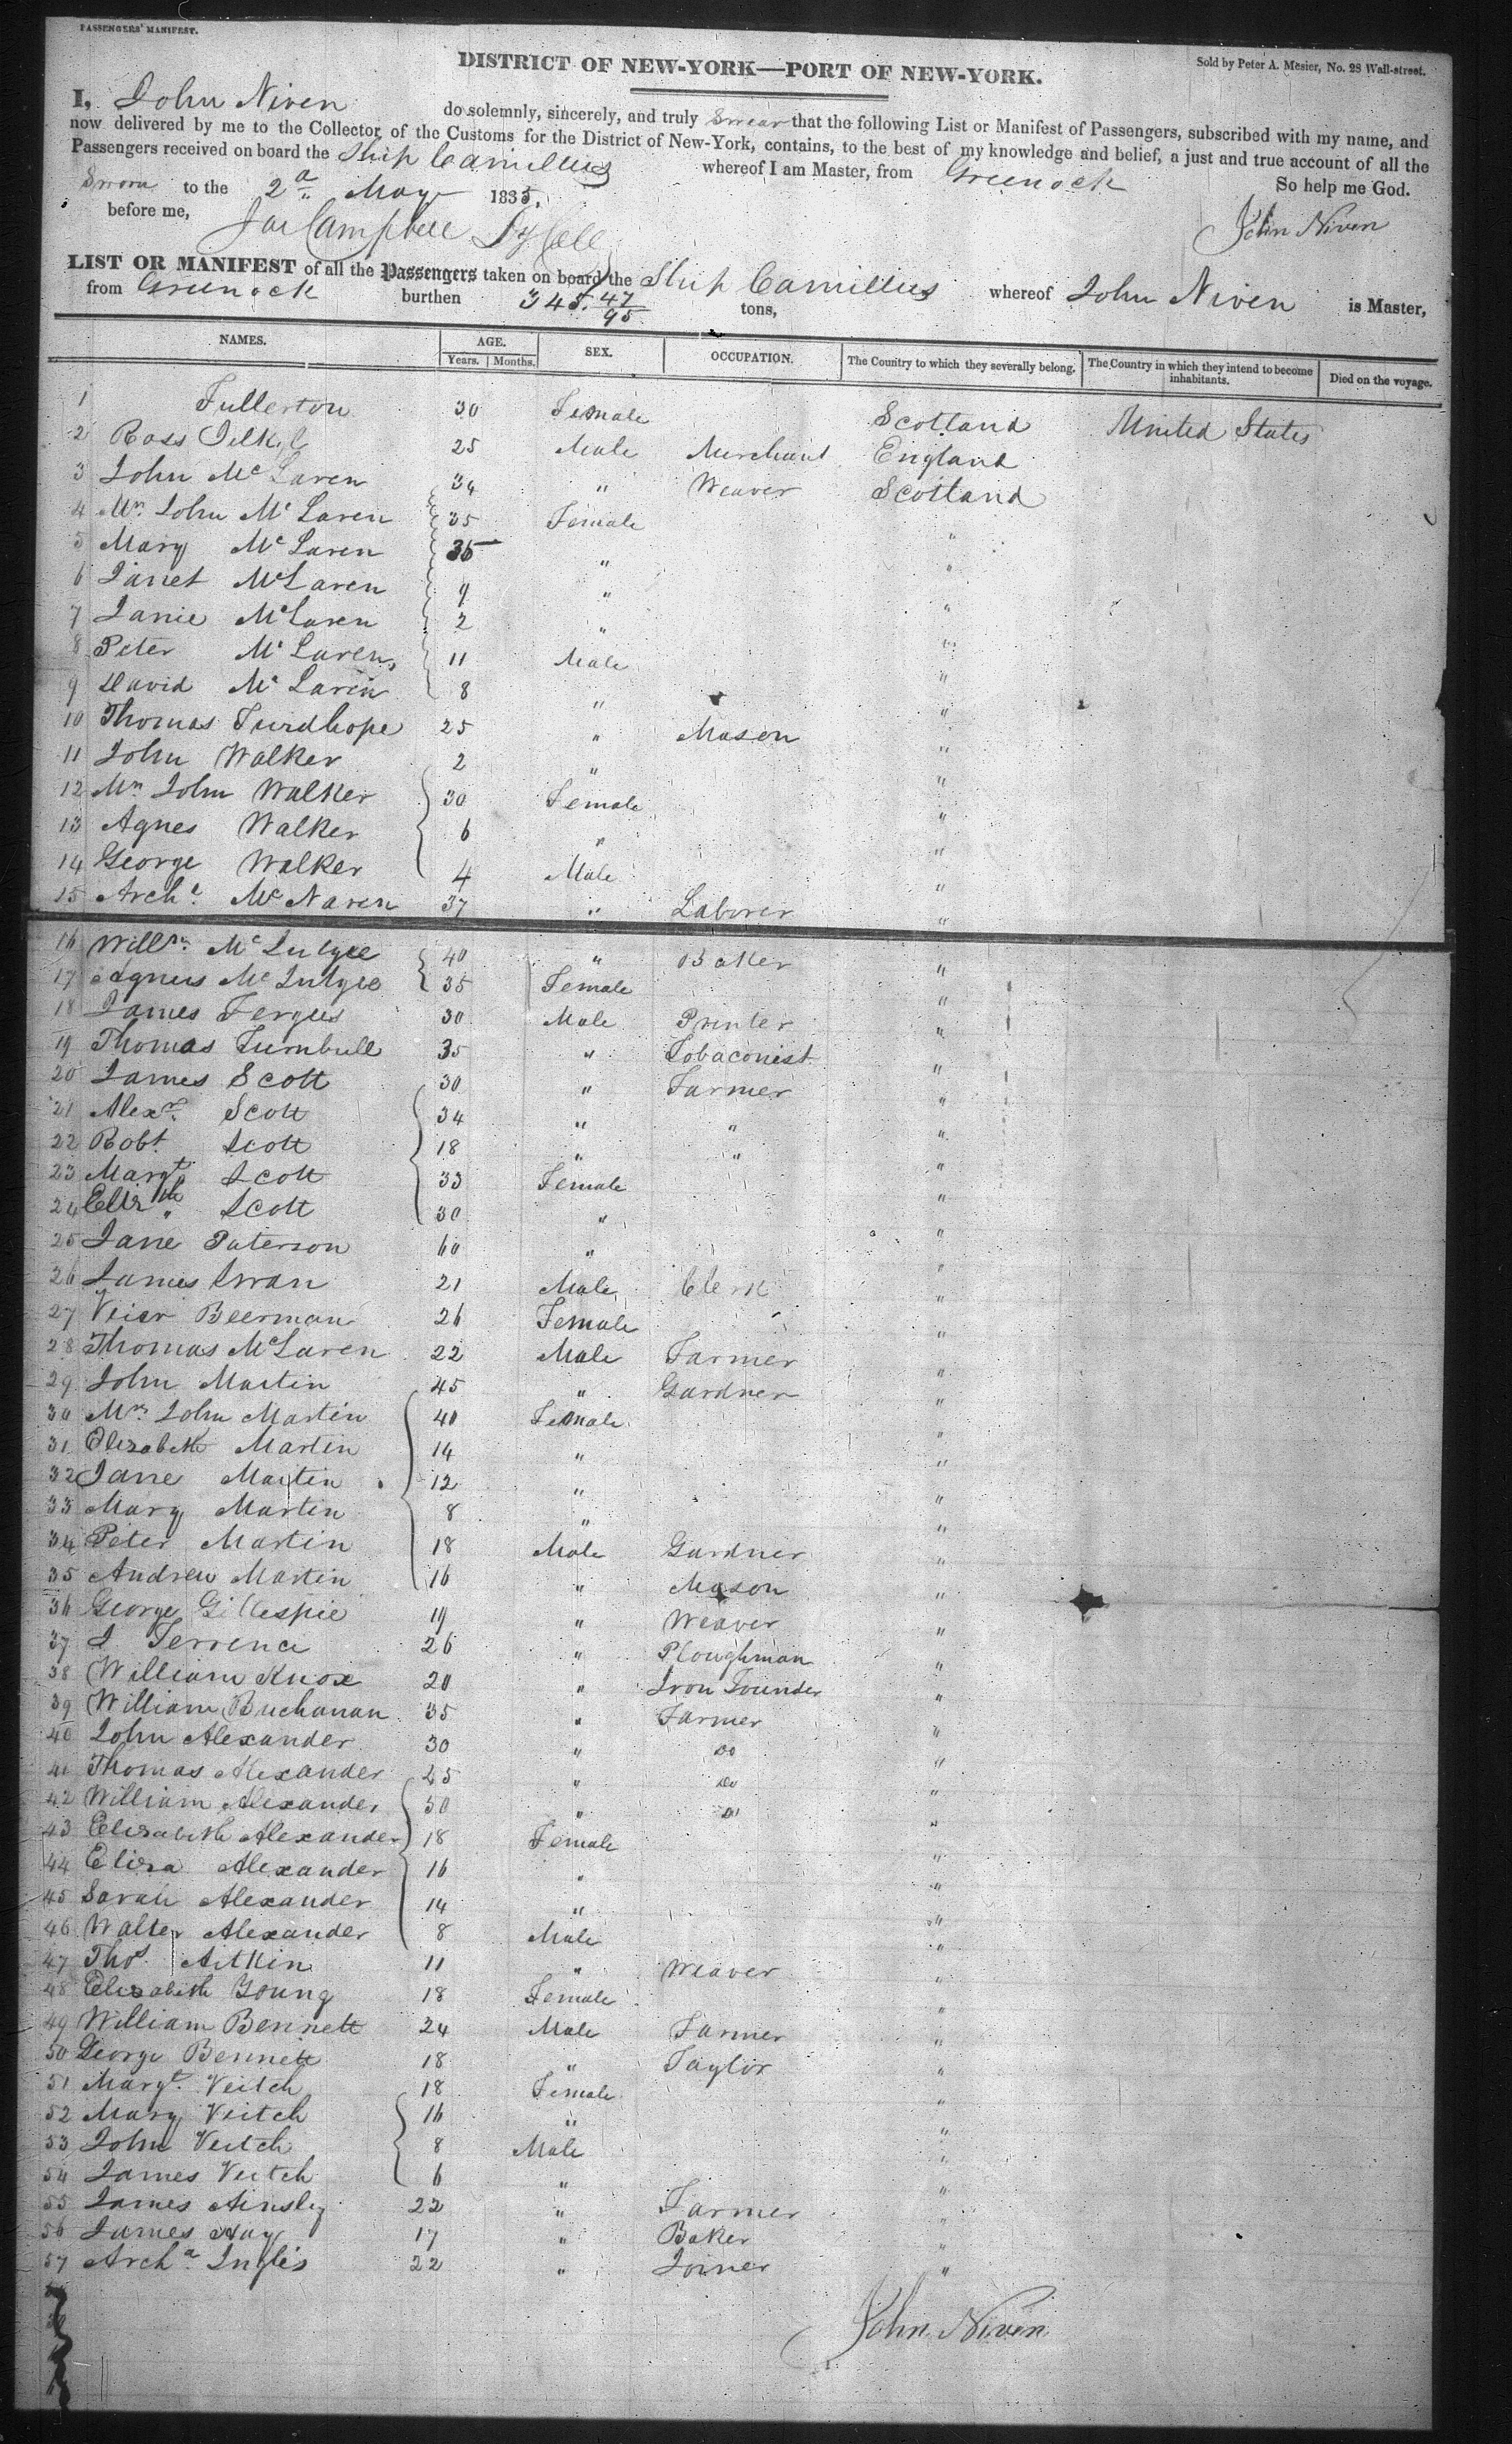 PASSENGERS' MANIFEST.
DISTRICT OF NEW-YORK—PORT OF NEW-YORK.
Sold by Peter A. Mesier, No. 28 Wall-street.
I, John Niven do solemnly, sincerely, and truly Swear that the following List or Manifest of Passengers, subscribed with my name, and
now delivered by me to the Collector of the Customs for the District of New-York, contains, to the best of my knowledge and belief, a just and true account of all the
Passengers received on board the Ship Camillus whereof I am Master, from Greenock
Sworn to the 2d May 1835. So help me God.
before me, Campbell John Niven
LIST OR MANIFEST of all the Passengers taken on board the Ship Camillus whereof John Niven is Master,
from Greenock burthen 345. 47/95 tons,
NAMES. AGE. Years. Months. SEX. OCCUPATION. The Country to which they severally belong. The Country in which they intend to become inhabitants. Died on the voyage.
1 Fullerton 30 Female Scotland United States
2 Ross 25 Male Merchant England
3 John Mc Laren 34 " Weaver Scotland
4 Mrs. John Mc Laren 35 Female "
5 Mary Mc Laren 35 " "
6 Janet McLaren 9 " "
7 Janie McLaren 2 " "
8 Peter Mc Laren, 11 Male "
9 David Mc Laren 8 " "
10 Thomas Turdhope 25 " Mason "
11 John Walker 2 " "
12 Mrs John Walker 30 Female "
13 Agnes Walker 6 " "
14 George Walker 4 Male "
15 Archd. Mc Naren 37 " Laborer "
16 Willm. 40 " Baker "
17 Agnes 35 Female "
18 James Fergus 30 Male Printer "
19 Thomas Turnbull 35 " Tobaconist "
20 James Scott 30 " Farmer "
21 Alexr. Scott 34 " " "
22 Robt. Scott 18 " " "
23 Margt. Scott 33 Female "
24 Elizth. Scott 30 " "
25 Jane Paterson 60 " "
26 James Swan 21 Male Clerk "
27 Beerman 26 Female "
28 Thomas McLaren 22 Male Farmer "
29 John Martin 45 " Gardner "
30 Mrs John Martin 40 Female "
31 Elizabeth Martin 14 " "
32 Jane Martin 12 " "
33 Mary Martin 8 " "
34 Peter Martin 18 Male Gardner "
35 Andrew Martin 16 " Mason "
36 George Gillespie 19 " Weaver "
37 J Terrence 26 " Ploughman "
38 William Knox 20 " Iron Founder "
39 William Buchanan 35 " Farmer "
40 John Alexander 30 " Do "
41 Thomas Alexander 25 " Do "
42 William Alexander 50 " Do "
43 Elizabeth Alexander 18 Female "
44 Eliza Alexander 16 " "
45 Sarah Alexander 14 " "
46 Walter Alexander 8 Male "
47 Thos. Aitkin 11 " Weaver "
48 Elizabeth Young 18 Female "
49 William Bennett 24 Male Farmer "
50 George Bennett 18 " Taylor "
51 Margt. Veitch 18 Female "
52 Mary Veitch 16 " "
53 John Veitch 8 Male "
54 James Veitch 6 " "
55 James Ainsley 22 " Farmer "
56 James Hay 17 " Baker "
57 Archd. Inglis 22 " Joiner "
John Niven